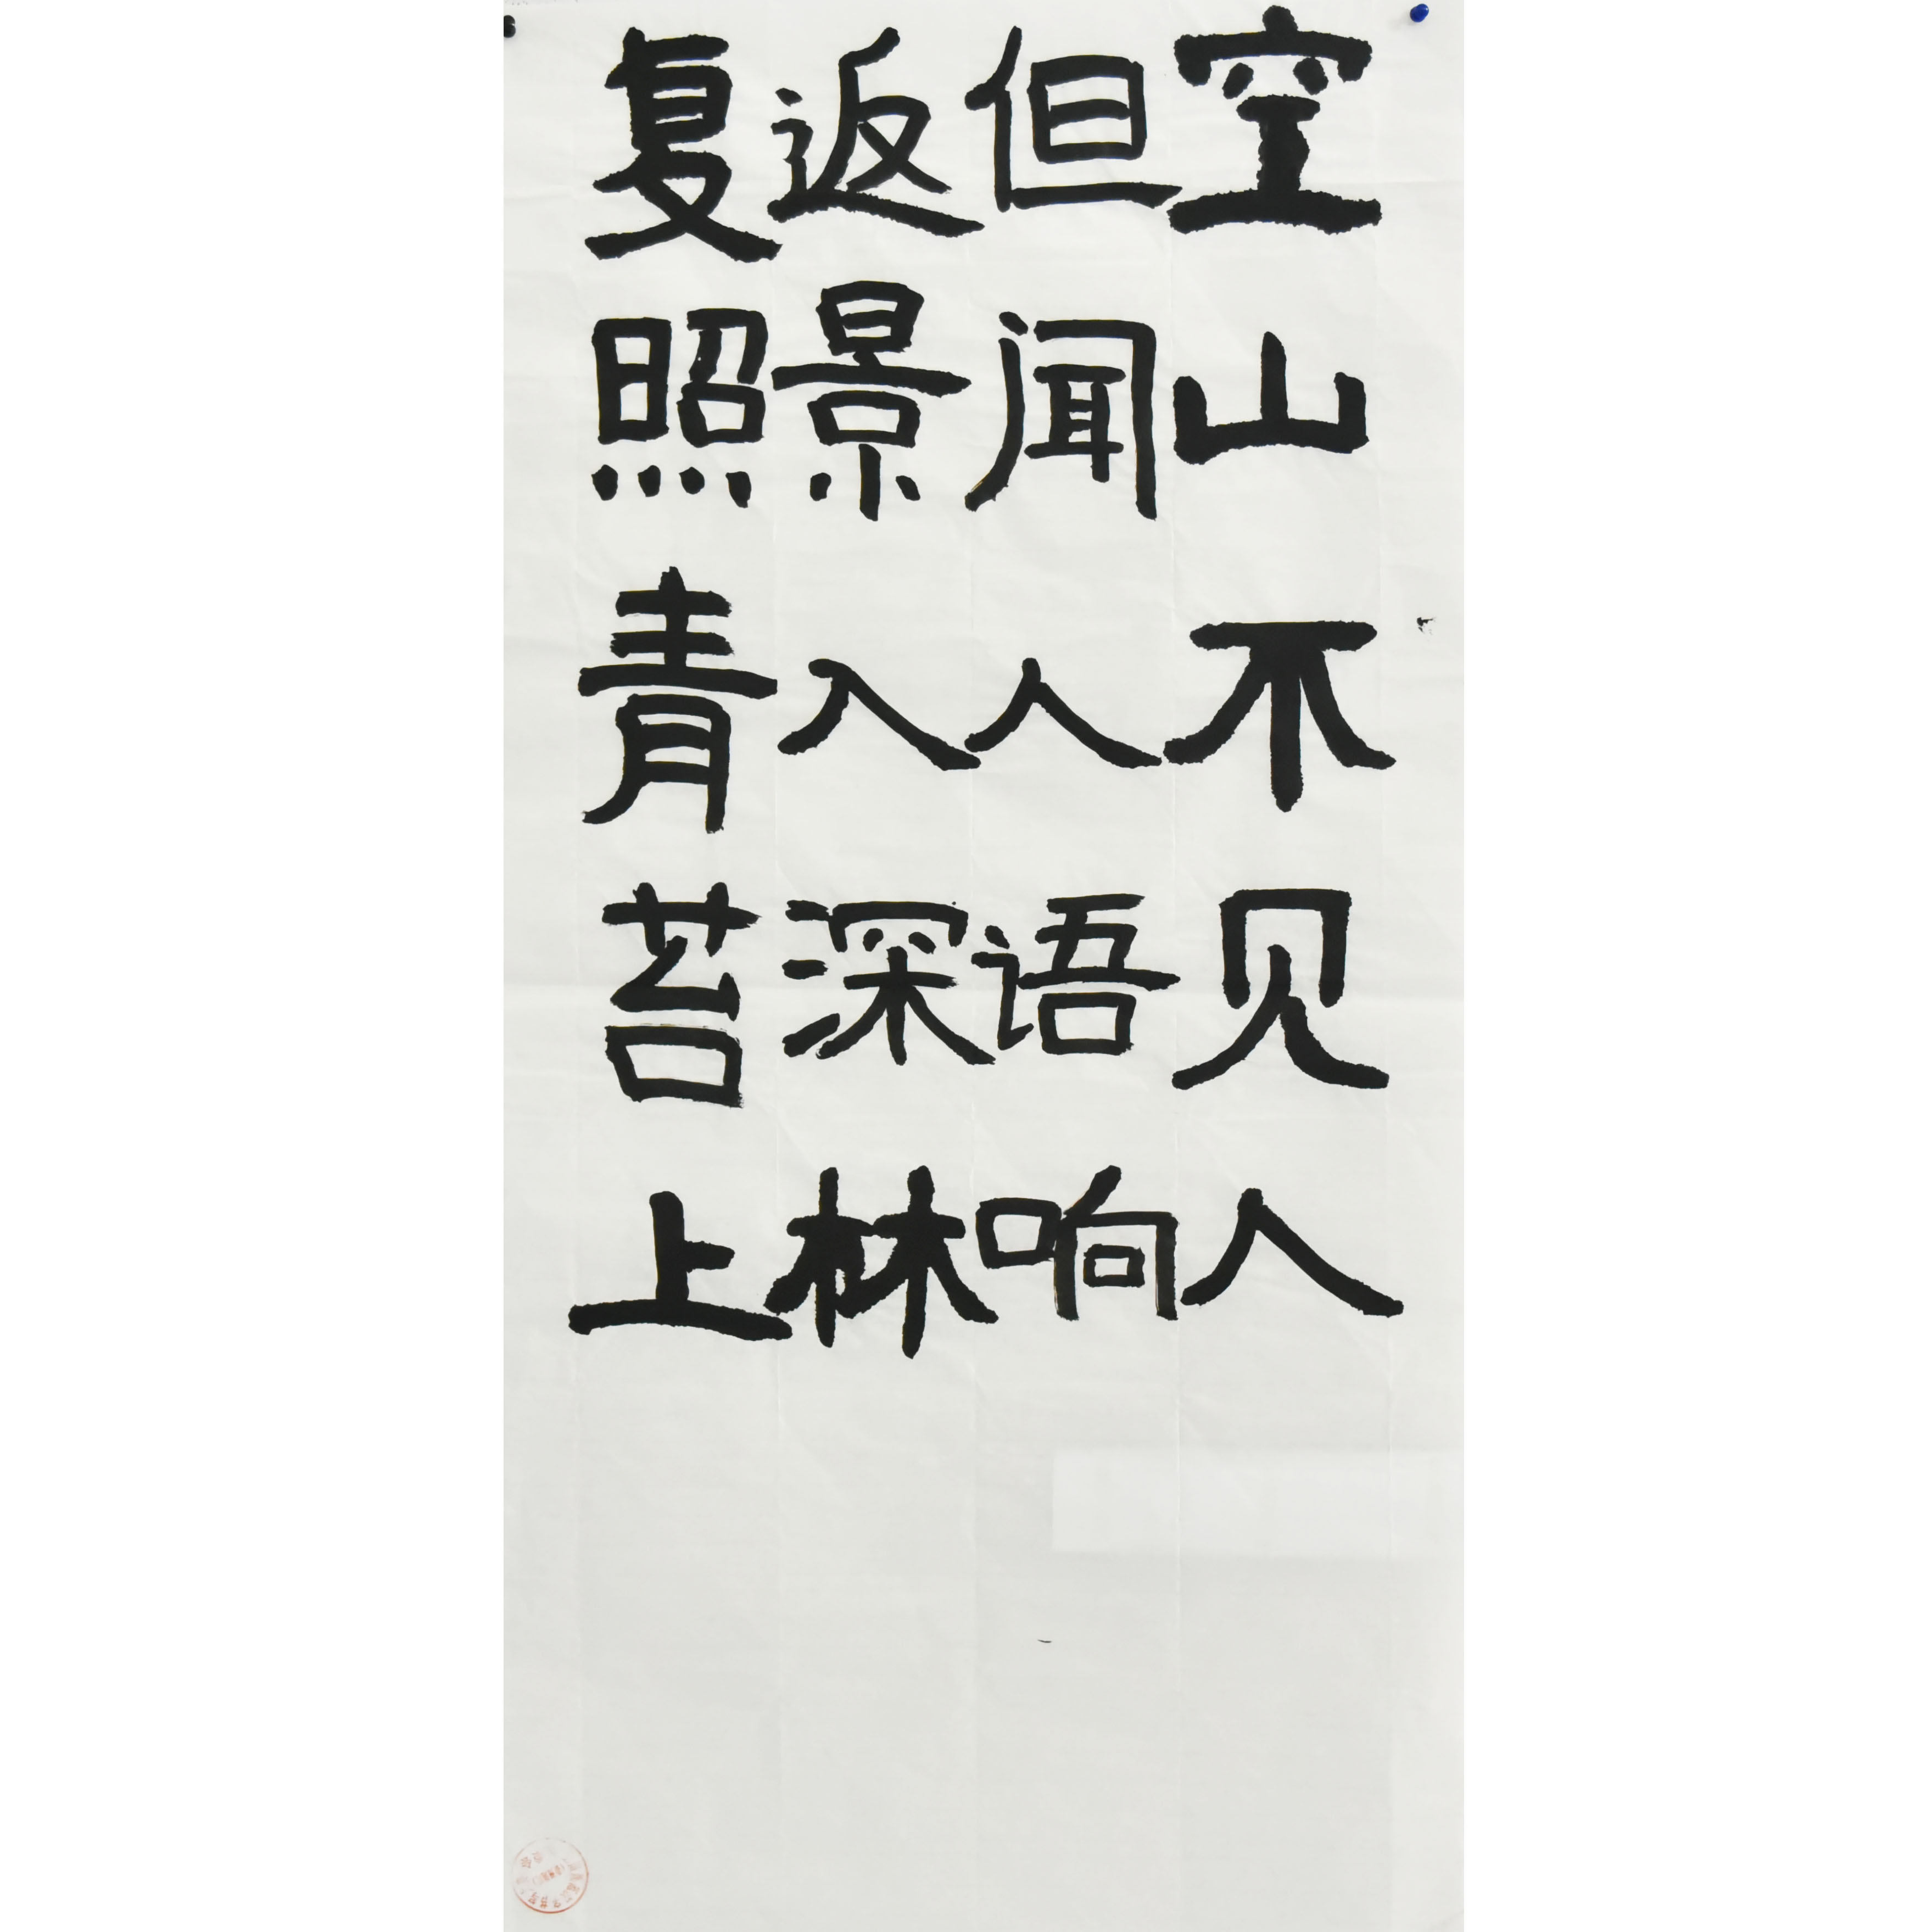 空山不见人
但闻人语响
返景入深林
复照青苔上